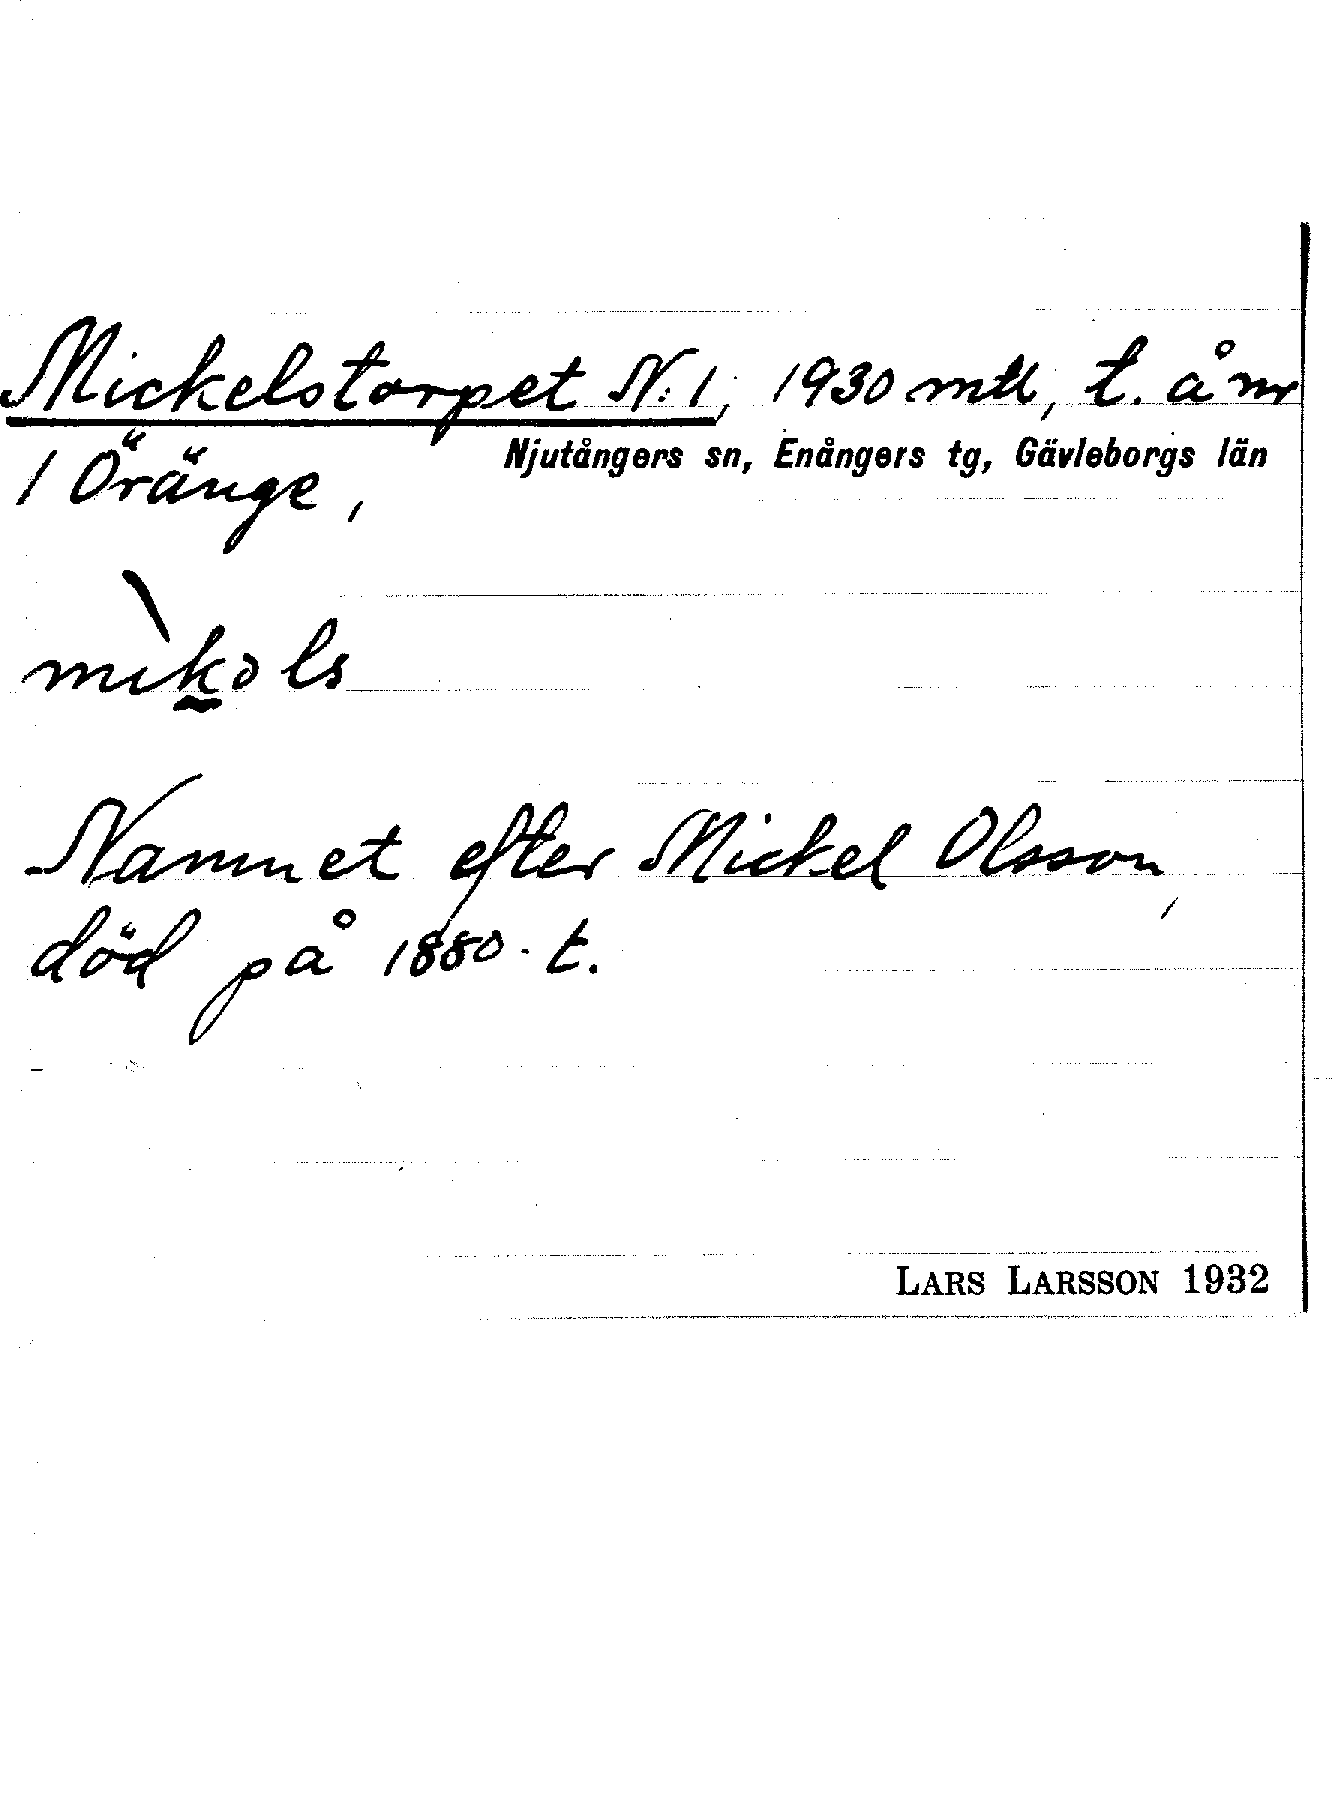 Mickelstorpet N:1, 1930 mtl, t. å nr
Njutångers sn, Enångers tg, Gävleborgs län
1 Öränge,
mìkəls
Namnet efter Mickel Olsson,
död på 1880-t.
LARS LARSSON 1932